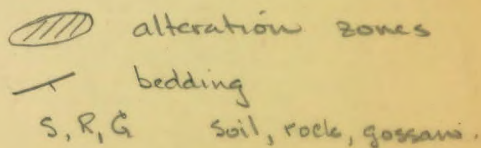 alteration zones
bedding
S, R, G soil, rock, gossans.